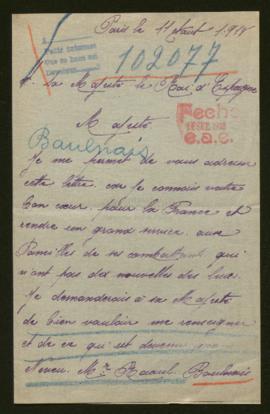 Paris le 11 août 1918
102077
A sa Majesté le Roi d'Espagne
Fecha
e.a.c.
Majesté
Baulnais
Je me permet de vous adresser
cette lettre, car je connais votre
bon cœur, pour la France et
rendre un grand service aux
Familles de ses combattants qui
n'ont pas des nouvelles des leurs.
Je demanderais à sa Majesté
de bien vouloir me renseigner
et de ce qui est devenu mon
Neveu, Mr Raoul Baulnais